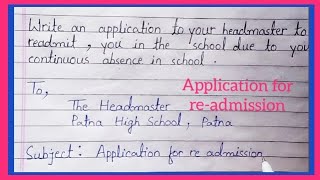 Write an application to your headmaster to
readmit, you in the school due to you
continuous absence in school.
To,
Application for
re-admission
The Headmaster
Patna High School, Patna
Subject: Application for re admission